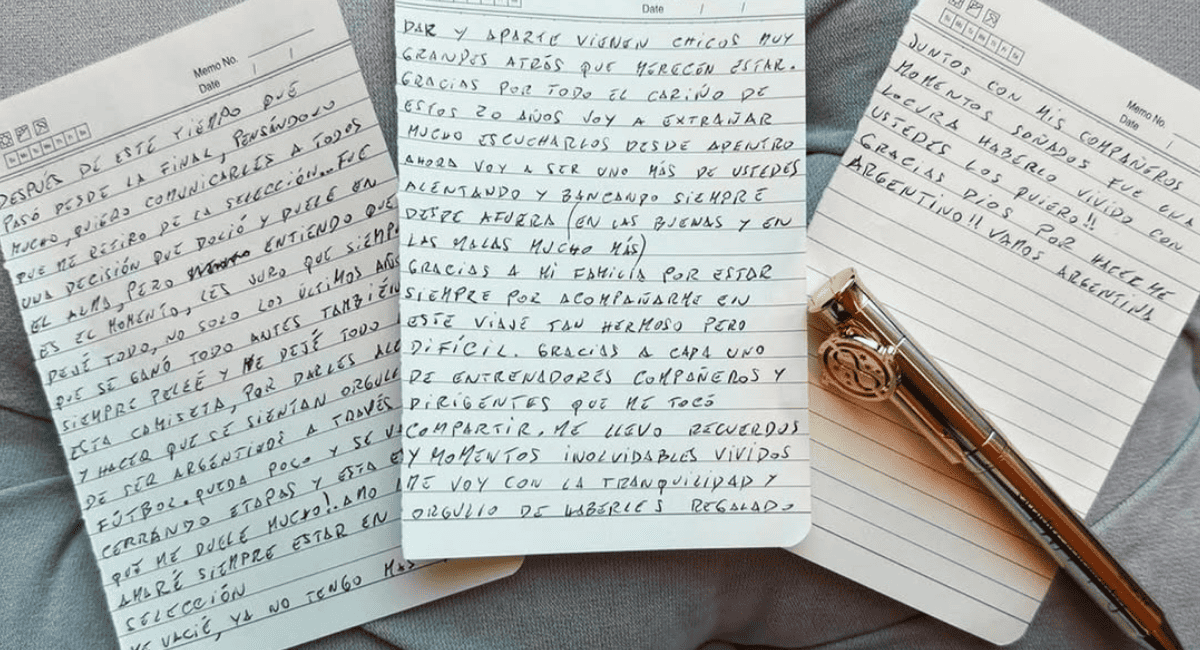 Memo No.
Date / /
DESPUÉS DE ESTE TIEMPO QUE
PASÓ DESDE LA FINAL, PENSÁNDOLO
MUCHO, QUIERO COMUNICARLES A TODOS
QUE ME RETIRO DE LA SELECCIÓN... FUE
UNA DECISIÓN QUE DOLIÓ Y DUELE EN
EL ALMA, PERO ENTIENDO QUE
ES EL MOMENTO, LES JURO QUE SIEMP
DEJÉ TODO, NO SOLO LOS ÚLTIMOS AÑOS
QUE SE GANÓ TODO ANTES TAMBIÉN
SIEMPRE PELEÉ Y ME DEJÉ TODO
ESTA CAMISETA, POR DARLES ALE
Y HACER QUE SE SIENTAN ORGULL
DE SER ARGENTINOS A TRAVÉS
FÚTBOL. QUEDA POCO Y SE VA
CERRANDO ETAPAS Y ESTA E
QUE ME DUELE MUCHO!! AMO
AMARÉ SIEMPRE ESTAR EN
SELECCIÓN
ME VACIÉ, YA NO TENGO MAS
Date / /
DAR Y APARTE VIENEN CHICOS MUY
GRANDES ATRÁS QUE MERECEN ESTAR.
GRACIAS POR TODO EL CARIÑO DE
ESTOS 20 AÑOS VOY A EXTRAÑAR
MUCHO ESCUCHARLOS DESDE ADENTRO
AHORA VOY A SER UNO MÁS DE USTEDES
ALENTANDO Y BANCANDO SIEMPRE
DESDE AFUERA (EN LAS BUENAS Y EN
LAS MALAS MUCHO MÁS)
GRACIAS A MI FAMILIA POR ESTAR
SIEMPRE POR ACOMPAÑARME EN
ESTE VIAJE TAN HERMOSO PERO
DIFÍCIL. GRACIAS A CADA UNO
DE ENTRENADORES COMPAÑEROS Y
DIRIGENTES QUE ME TOCÓ
COMPARTIR. ME LLEVO RECUERDOS
Y MOMENTOS INOLVIDABLES VIVIDOS
ME VOY CON LA TRANQUILIDAD Y
ORGULLO DE HABERLES REGALADO
Memo No.
Date /
JUNTOS CON MIS COMPAÑEROS
MOMENTOS SOÑADOS FUE UNA
LOCURA HABERLO VIVIDO CON
USTEDES LOS QUIERO!!
GRACIAS DIOS POR HACERME
ARGENTINO!! VAMOS ARGENTINA